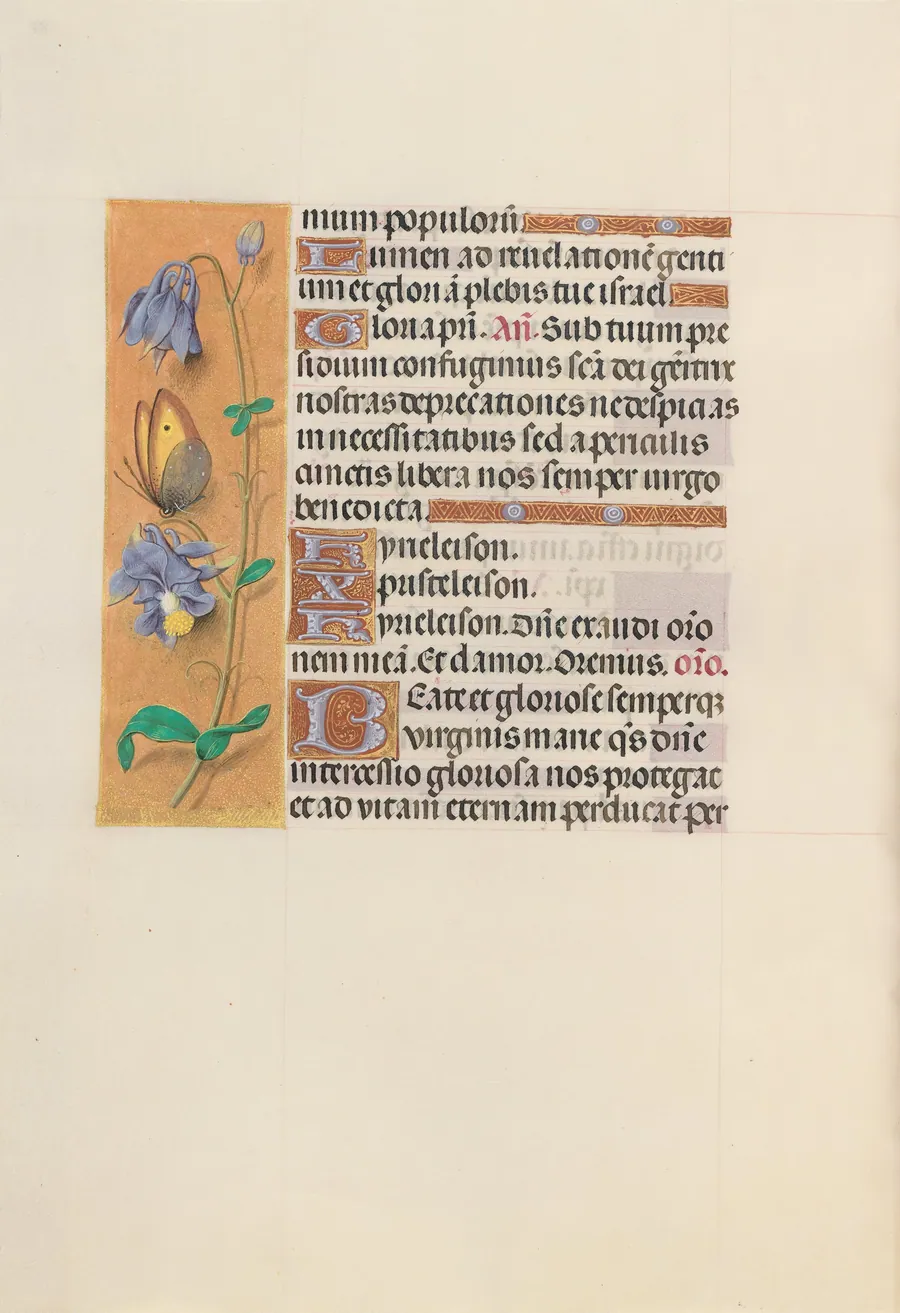 mum populorū
Lumen ad reuelationē genti
um et gloriā plebis tue israel
Gloria pr̄i. An̄. Sub tuum pre
sidium confugimus sc̄ā dei gēitrix
nostras deprecationes ne despicias
in necessitatibus sed a periculis
cunctis libera nos semper uirgo
benedicta
Kyrieleison.
Xpristeleison.
Kyrieleison. Dn̄e exaudi or̄o
nem meā. Et clamor. Oremus. or̄o.
Beate et gloriose semperqꝫ
virginis marie q̄s dn̄e
intercessio gloriosa nos protegat
et ad vitam eternam perducat per